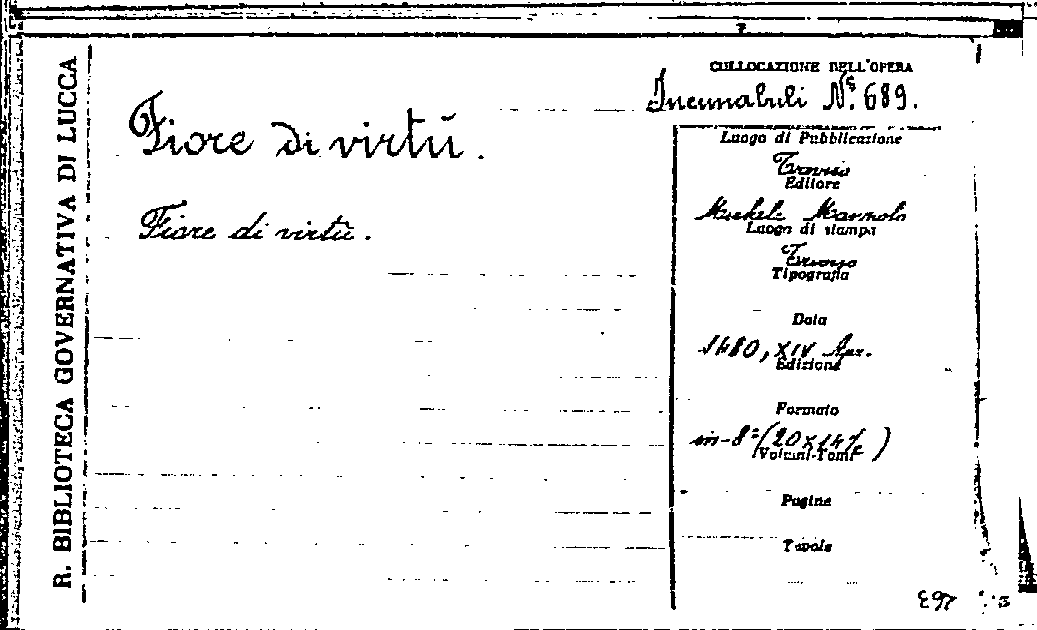 R. BIBLIOTECA GOVERNATIVA DI LUCCA
Fiore di virtù.
Fiore di virtù.
COLLOCAZIONE DELL'OPERA
Incunabuli Nº. 689.
Luogo di Pubblicazione
Treviso
Editore
Michele Manzolo
Luogo di stampa
Treviso
Tipografia
Data
1480, XIV
Edizione
Formato
in-8º (20x14½)
Volumi-Tomi
Pagine
Tavole
E97